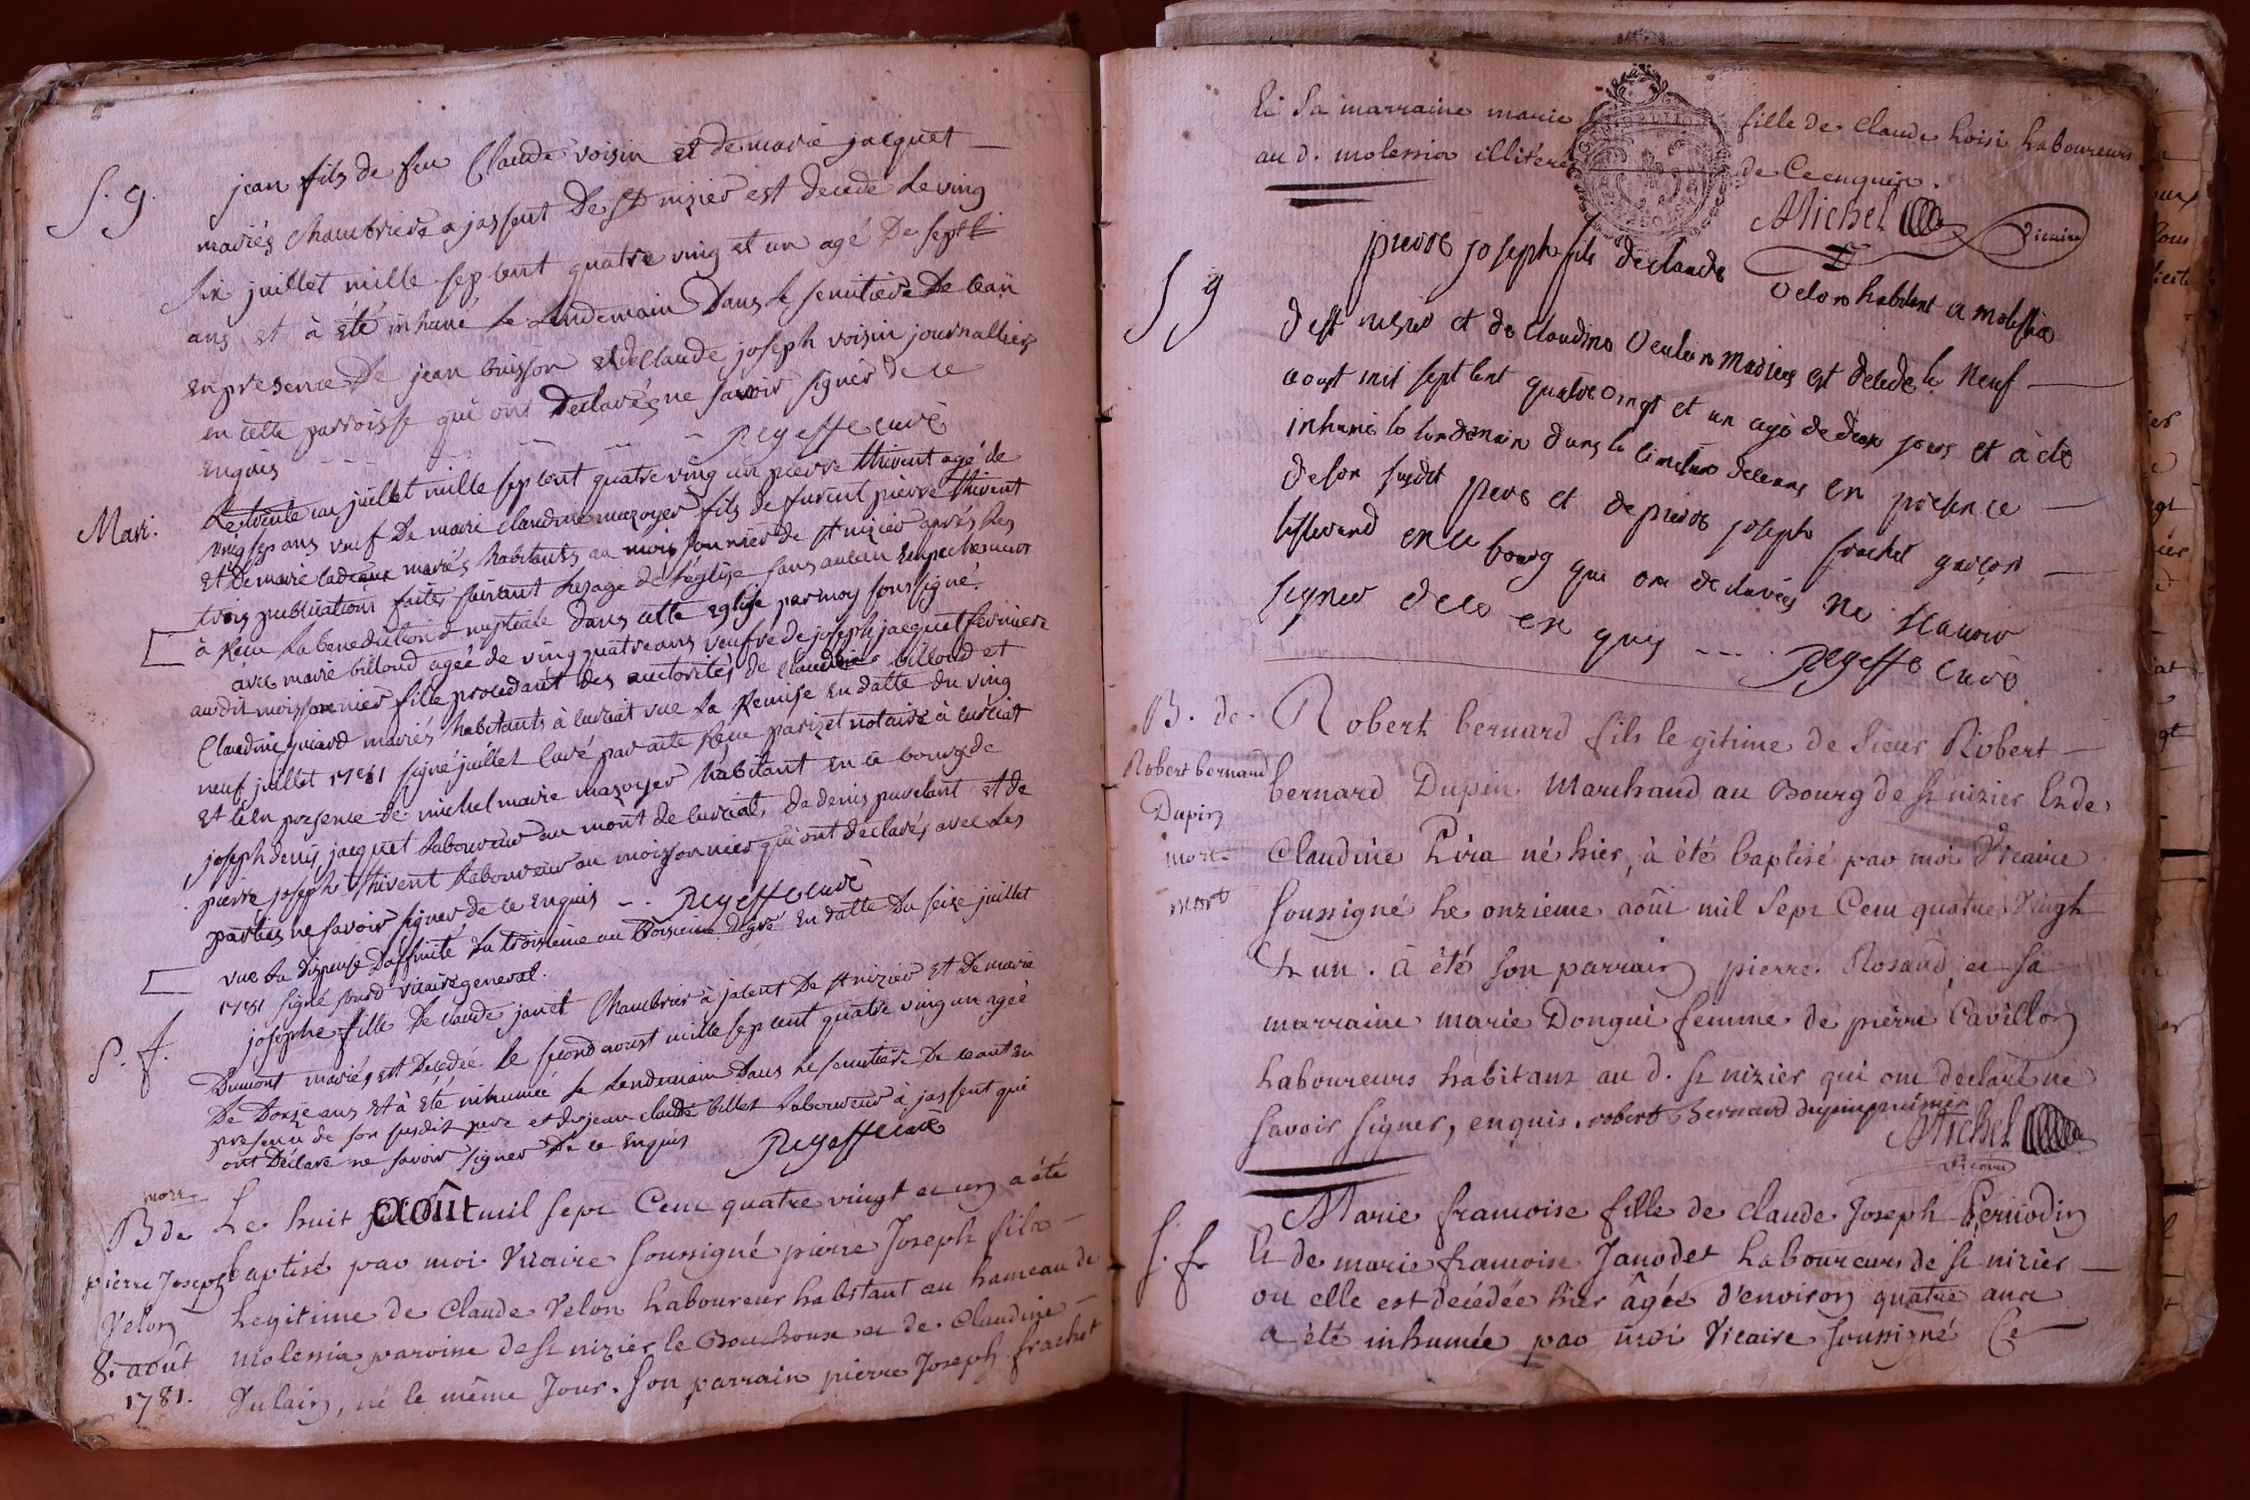 S. g.
jean fils de feu Claude voisin et de marie jacquet
mariés chambriers a jassent de st nizier est decede le ving
six juillet mille sep cent quatre ving et un agé de sept
ans et à été inhumé le lendemain dans le semitière de cean
en presence de jean buisson et de claude joseph voisin journalliers
en cette parroisse qui ont declarés ne savoir signer de ce
enquis
Regeffe curé
Mari.
Le trente un juillet mille sep cent quatre ving un pierre thivent agé de
ving sep ans veuf de marie claudine mazoyer fils de furent pierre thivent
et de marie mariés habitants au moissonnier de st nizier après les
trois publications faites suivant lusage de l'église sans aucun empechement
à Recu la benediction nuptiale dans cette eglise par moy soussigné
avec marie billoud agée de ving quatre ans veufve de joseph jacquet fermiere
audit moissonnier fille procedant des auctorités de claude billoud et
Claudine guiard mariés habitants à curciat vue la Remise en datte du ving
neuf juillet 1781 signé juillet curé par acte Recu parizet notaire à curciat
et ce en presence de michel marie mazoyer habitant en ce bourg de
joseph denis jacquet laboureur au mont de curciat, de denis pavelant et de
pierre joseph thivent laboureur au moissonnier qui ont declarés avec les
parties ne savoir signer de ce enquis Regeffe curé
vue la dispense daffinité du troisieme au troisieme degré en datte du seize juillet
1781 signé vicaire general.
S. f.
josephe fille de claude janet Chambrier à jacent de st nizier et de marie
Dumont mariés est decedée le second aoust mille sep cent quatre ving un agée
de douze ans et à été inhumée le lendemain dans le semitière de ceant en
presence de son susdit pere et de jean claude billet laboureur à jassent qui
ont déclaré ne savoir signer de ce enquis Regeffe curé
mort
B de
pierre Joseph
Velon
8. août
1781.
Le huit août mil sept Cent quatre vingt et un a été
baptisé par moi Vicaire soussigné pierre Joseph fils
legitime de Claude Velon laboureur habitant au hameau de
molessia paroisse de st nizier le Bouchoux et de Claudine
Vulain, né le même Jour. Son parrain pierre Joseph frachet
Et sa marraine marie fille de claude laboureurs
au d. molessia illitérés de Ce enquis.
Michel
Vicaire
S g
pierre joseph fils de claude Velon habitant a molessia
de st nizier et de Claudine Veulain mariés est decede le neuf
aoust mil sept cent quatre vingt et un agé de deux jours et à été
inhumé le lendemain dans le cimetiere de ceans en présence
de son susdit pere et de pierre joseph frachet garçon
en ce bourg qui ont declarés ne scavoir
signer de ce en quis
Regeffe curé
B. de
Robert bernard
Dupin
mort
mort
Robert bernard fils legitime de Sieur Robert
bernard Dupin Marchand au Bourg de st nizier Et de
Claudine né hier, à été baptisé par moi Vicaire
soussigné le onzieme août mil sept Cent quatre Vingt
Et un. à été son parrain pierre Rosand, et sa
marraine marie Dongui femme de pierre Cavillon
laboureurs habitans au d. st nizier qui ont déclaré ne
savoir signer, enquis. robert Bernard dupin
Michel
vicaire
S. f
Marie francoise fille de claude Joseph Pernodin
Et de marie francoise Janodet laboureurs de st nizier
ou elle est décédée hier âgée d'environ quatre ans
a été inhumée par moi Vicaire soussigné Ce